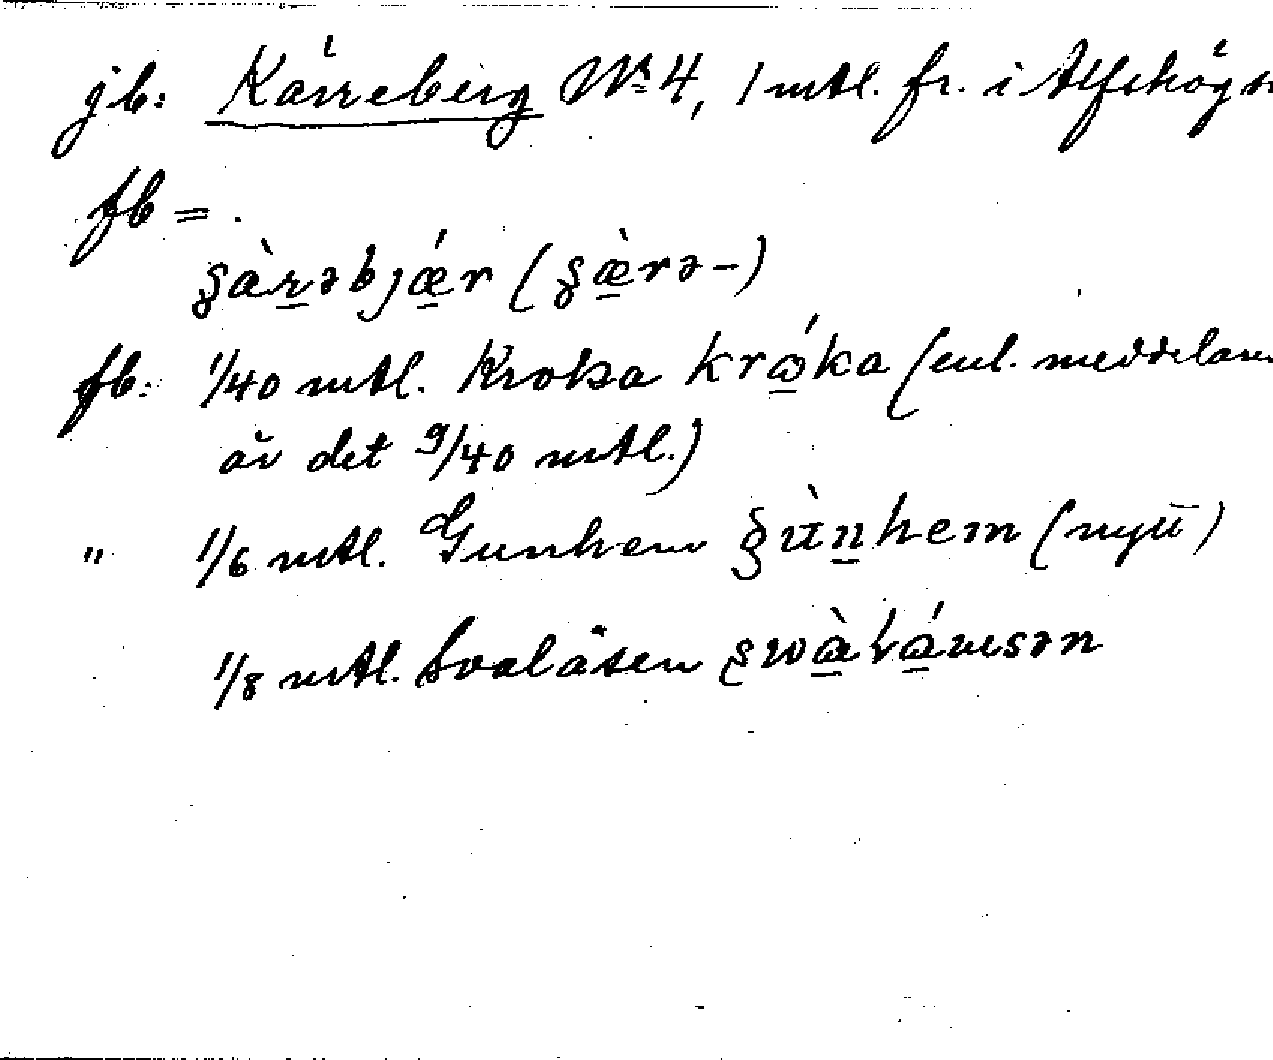 jb: Kärreberg Nr 4, 1 mtl. fr. i Alfshögs
fb = .
ʂàrəbjǽr (ʂæ̀rə-)
fb: 1/40 mtl. Kroka krɷ́ka (enl. meddelan
är det 9/40 mtl.)
" 1/6 mtl. Gunhem hem (nytt)
1/8 mtl. Svalåsen